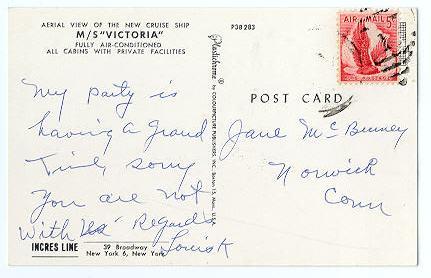 AERIAL VIEW OF THE NEW CRUISE SHIP
M/S "VICTORIA"
FULLY AIR-CONDITIONED
ALL CABINS WITH PRIVATE FACILITIES
P38283
Plastichrome ® by COLOURPICTURE PUBLISHERS, INC., Boston 15, Mass., U.S.A.
AIR MAIL 5¢
POST CARD
My party is
having a grand
Time, sorry
you are not
With Us. Regards
Louis K
Jane McBurney
Norwich
Conn
INCRES LINE
39 Broadway
New York 6, New York